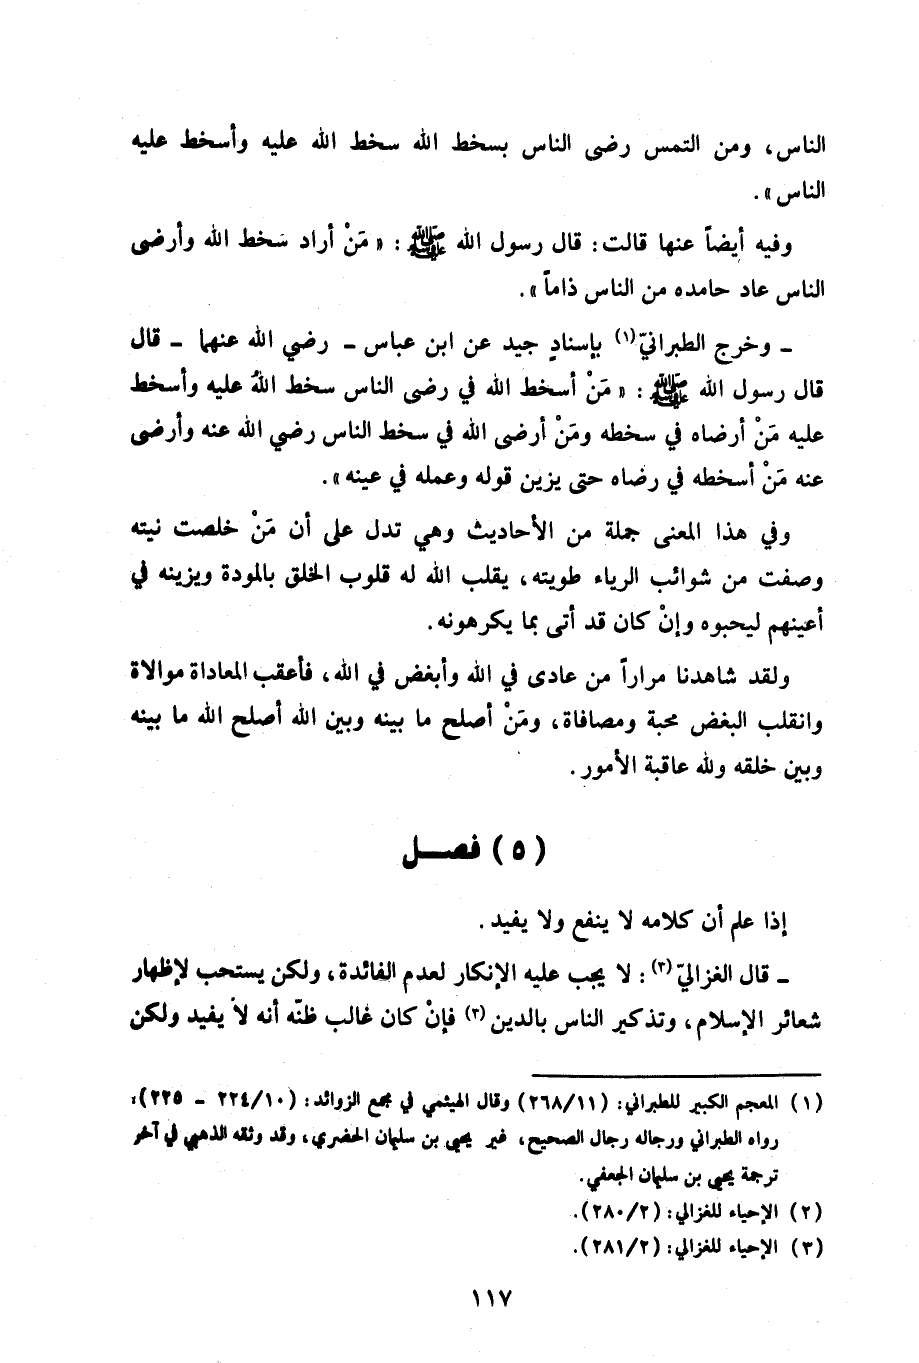 الناس، ومن التمس رضى الناس بسخط الله سخط الله عليه وأسخط عليه
الناس».
وفيه أيضاً عنها قالت: قال رسول الله ﷺ: «مَنْ أراد سَخط الله وأرضى
الناس عاد حامده من الناس ذاماً».
ـ وخرج الطبرانيّ(١) بإسنادٍ جيد عن ابن عباس ـ رضي الله عنهما ـ قال
قال رسول الله ﷺ: «مَنْ أسخط الله في رضى الناس سخط اللهُ عليه وأسخط
عليه مَنْ أرضاه في سخطه ومَنْ أرضى الله في سخط الناس رضي الله عنه وأرضى
عنه مَنْ أسخطه في رضاه حتى يزين قوله وعمله في عينه».
وفي هذا المعنى جملة من الأحاديث وهي تدل على أن مَنْ خلصت نيته
وصفت من شوائب الرياء طويته، يقلب الله له قلوب الخلق بالمودة ويزينه في
أعينهم ليحبوه وإنْ كان قد أتى بما يكرهونه.
ولقد شاهدنا مراراً من عادى في الله وأبغض في الله، فأعقب المعاداة موالاة
وانقلب البغض محبة ومصافاة، ومَنْ أصلح ما بينه وبين الله أصلح الله ما بينه
وبين خلقه ولله عاقبة الأمور.
(٥) فصـــل
إذا علم أن كلامه لا ينفع ولا يفيد.
ـ قال الغزاليّ(٢): لا يجب عليه الإنكار لعدم الفائدة، ولكن يستحب لإظهار
شعائر الإسلام، وتذكير الناس بالدين(٣) فإنْ كان غالب ظنّه أنه لا يفيد ولكن
(١) المعجم الكبير للطبراني: (٢٦٨/١١) وقال الهيثمي في مجمع الزوائد: (٢٢٤/١٠ ـ ٢٢٥):
رواه الطبراني ورجاله رجال الصحيح، غير يحيى بن سليمان الحضري، وقد وثقه الذهبي في آخر
ترجمة يحيى بن سليمان الجعفي.
(٢) الإحياء للغزالي: (٢٨٠/٢).
(٣) الإحياء للغزالي: (٢٨١/٢).
١١٧